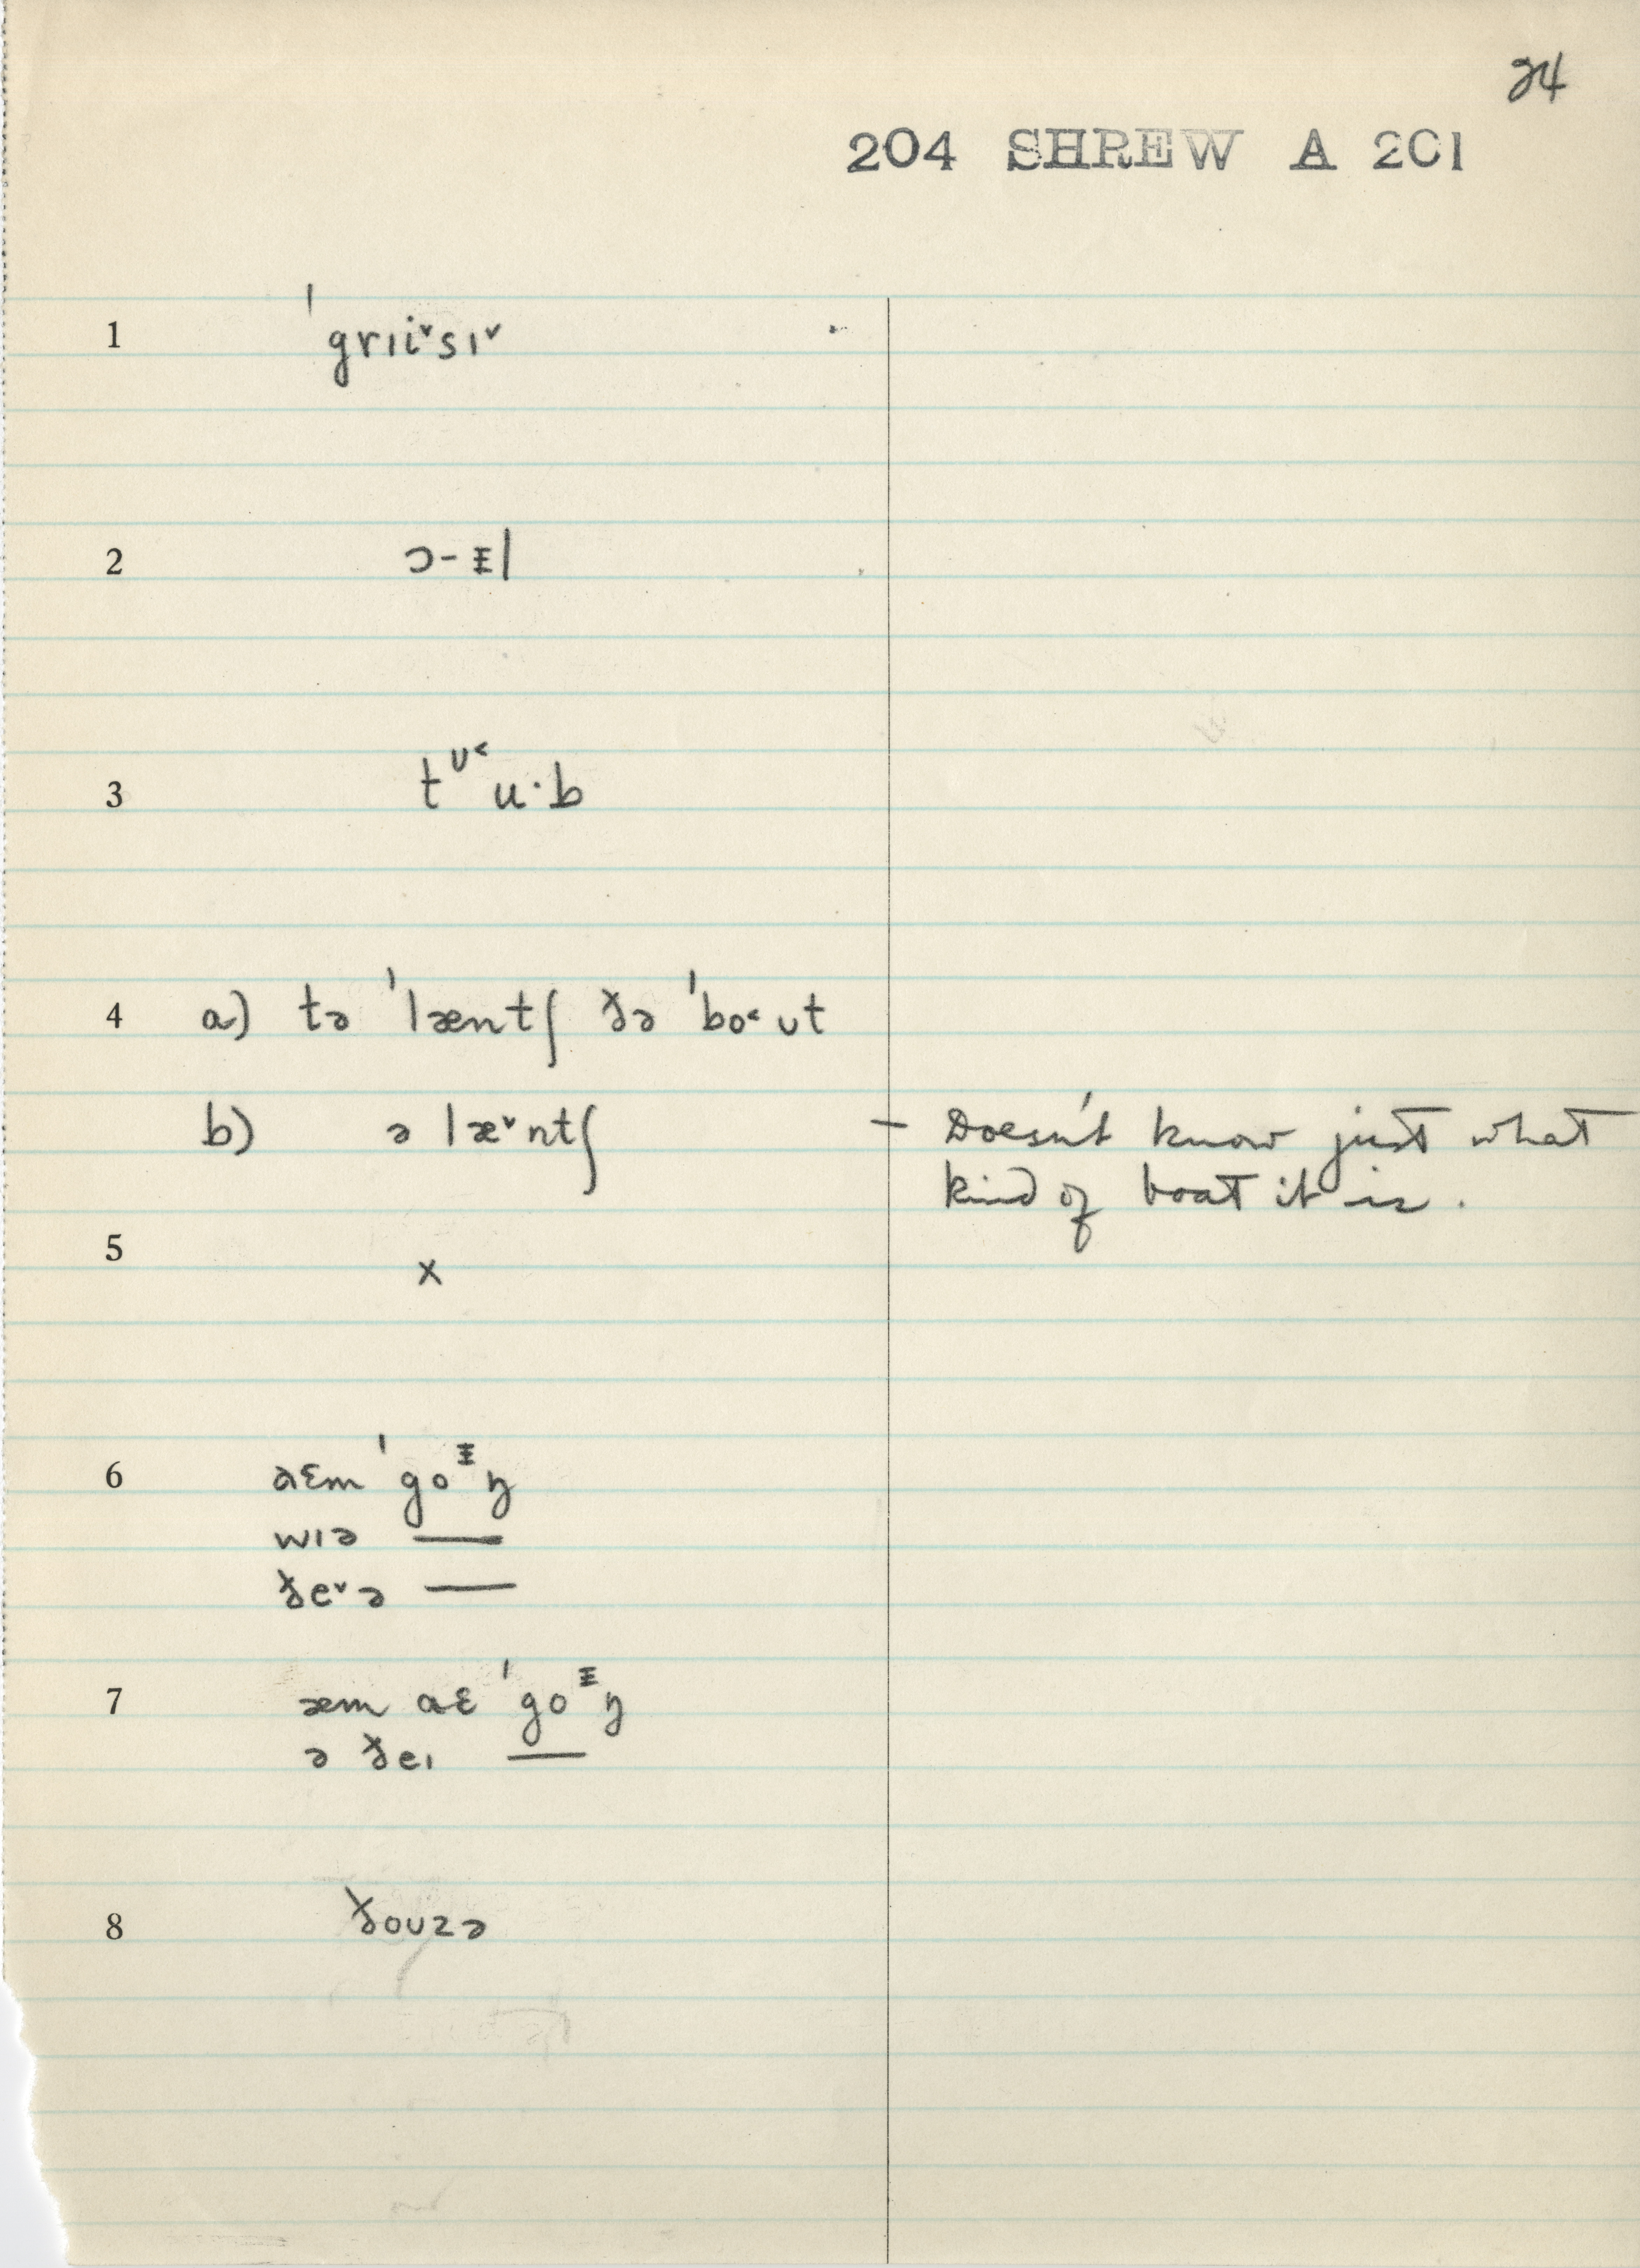 24
204 SHREW A 201
1 ˈgrɪi˅sɪ˅
2 ɔ-ᵻl
3 tᶷ˂u·b
4 a) tə ˈlæntʃ ðə ˈbo˂ʊt
b) ə læ˅ntʃ – Doesn't know just what
kind of boat it is.
5 x
6 aɛm ˈgoᵻŋ
wɪə —
ðe˅ə —
7 æm aɛ ˈgoᵻŋ
ə ðeɪ —
8 ðoʊzə